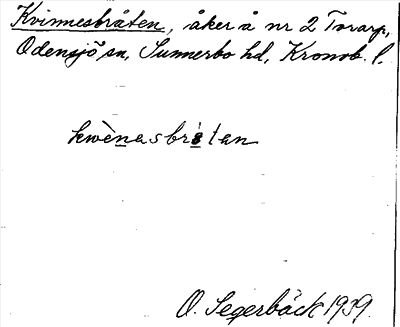 Kvinnesbråten, åker å nr 2 Torarp,
Odensjö sn, Sunnerbo hd, Kronob. l.
kwènasbrå̀tan
O. Segerbäck 1939.